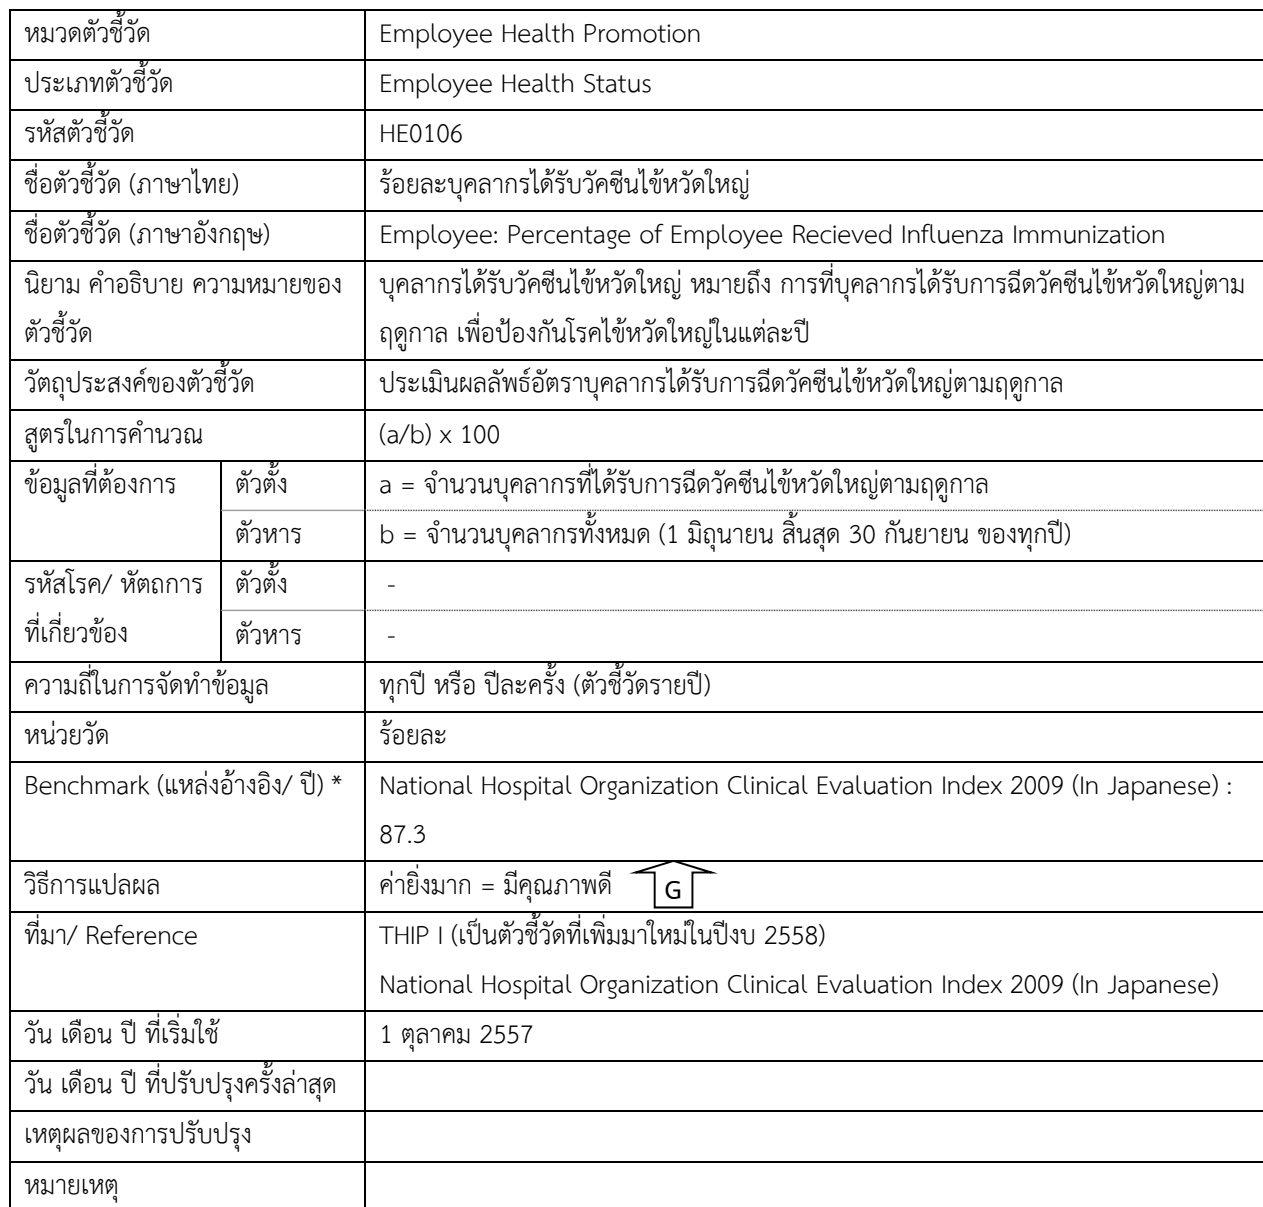 หมวดตัวชี้วัด Employee Health Promotion
ประเภทตัวชี้วัด Employee Health Status
รหัสตัวชี้วัด HE0106
ชื่อตัวชี้วัด (ภาษาไทย) ร้อยละบุคลากรได้รับวัคซีนไข้หวัดใหญ่
ชื่อตัวชี้วัด (ภาษาอังกฤษ) Employee: Percentage of Employee Recieved Influenza Immunization
นิยาม คำอธิบาย ความหมายของ บุคลากรได้รับวัคซีนไข้หวัดใหญ่ หมายถึง การที่บุคลากรได้รับการฉีดวัคซีนไข้หวัดใหญ่ตาม
ตัวชี้วัด ฤดูกาล เพื่อป้องกันโรคไข้หวัดใหญ่ในแต่ละปี
วัตถุประสงค์ของตัวชี้วัด ประเมินผลลัพธ์อัตราบุคลากรได้รับการฉีดวัคซีนไข้หวัดใหญ่ตามฤดูกาล
สูตรในการคำนวณ (a/b) x 100
ข้อมูลที่ต้องการ ตัวตั้ง a = จำนวนบุคลากรที่ได้รับการฉีดวัคซีนไข้หวัดใหญ่ตามฤดูกาล
ตัวหาร b = จำนวนบุคลากรทั้งหมด (1 มิถุนายน สิ้นสุด 30 กันยายน ของทุกปี)
รหัสโรค/ หัตถการ ตัวตั้ง -
ที่เกี่ยวข้อง ตัวหาร -
ความถี่ในการจัดทำข้อมูล ทุกปี หรือ ปีละครั้ง (ตัวชี้วัดรายปี)
หน่วยวัด ร้อยละ
Benchmark (แหล่งอ้างอิง/ ปี) * National Hospital Organization Clinical Evaluation Index 2009 (In Japanese) :
87.3
วิธีการแปลผล ค่ายิ่งมาก = มีคุณภาพดี G
ที่มา/ Reference THIP I (เป็นตัวชี้วัดที่เพิ่มมาใหม่ในปีงบ 2558)
National Hospital Organization Clinical Evaluation Index 2009 (In Japanese)
วัน เดือน ปี ที่เริ่มใช้ 1 ตุลาคม 2557
วัน เดือน ปี ที่ปรับปรุงครั้งล่าสุด
เหตุผลของการปรับปรุง
หมายเหตุ